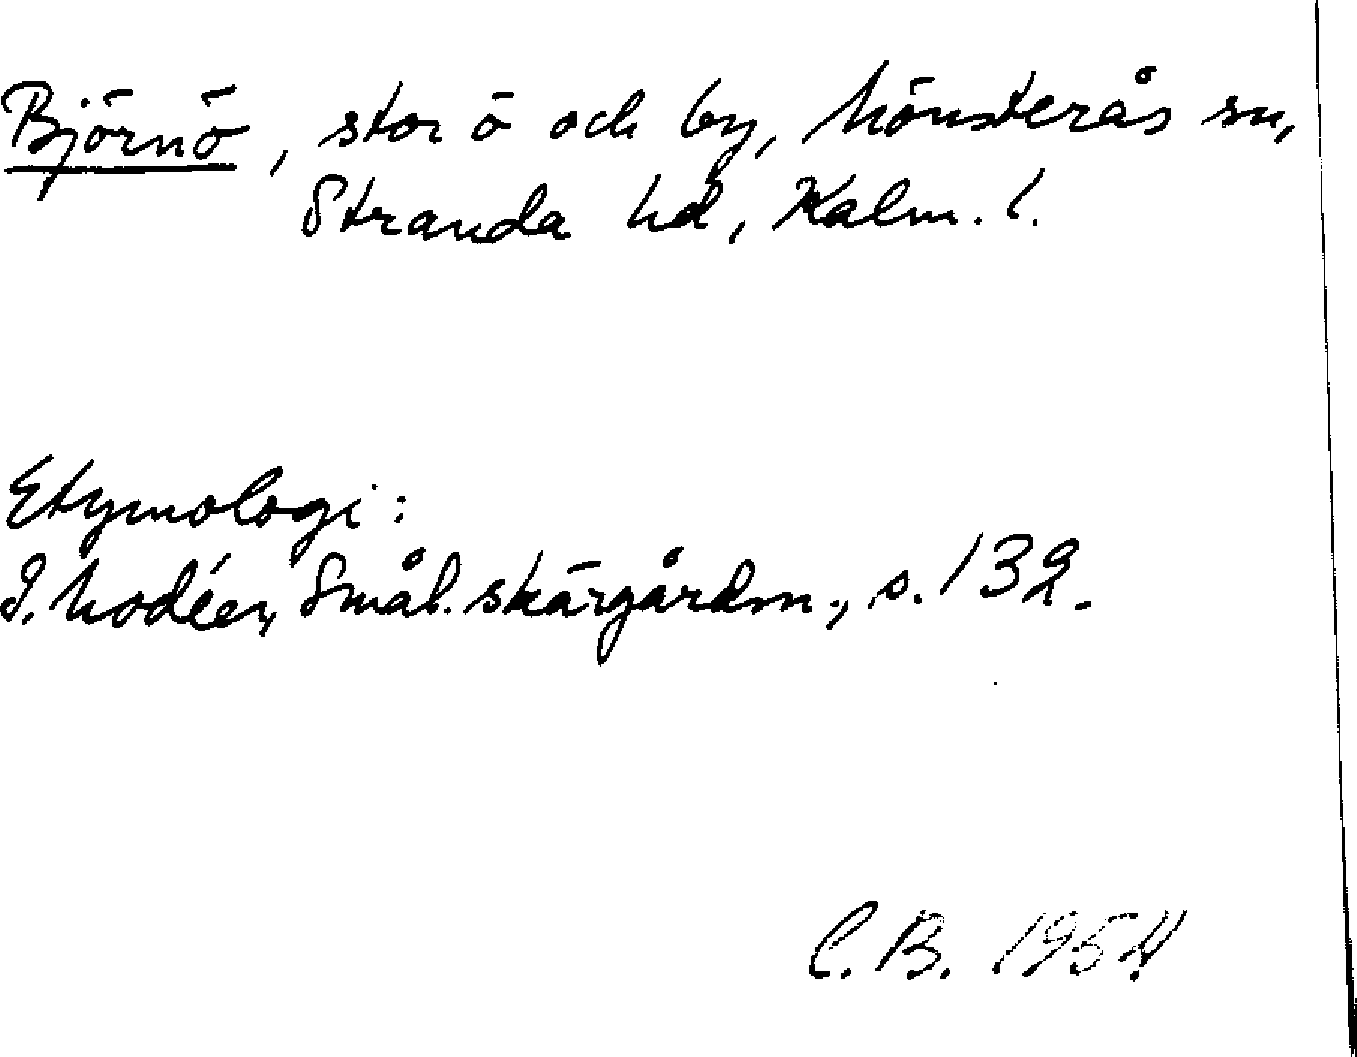 Björnö, stor ö och by, Mönsterås sn,
Stranda hd, Kalm. l.
Etymologi:
I. Modéer, Smål. skärgårdm., s. 132.
C.B. 1954